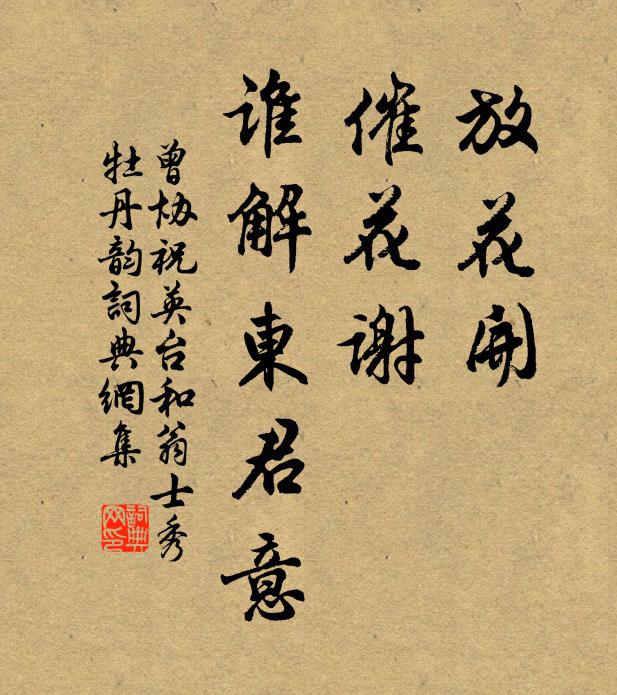 放花開
催花謝
誰解東君意
曾協祝英台和翁士秀
牡丹韵詞典網集
詞典网印